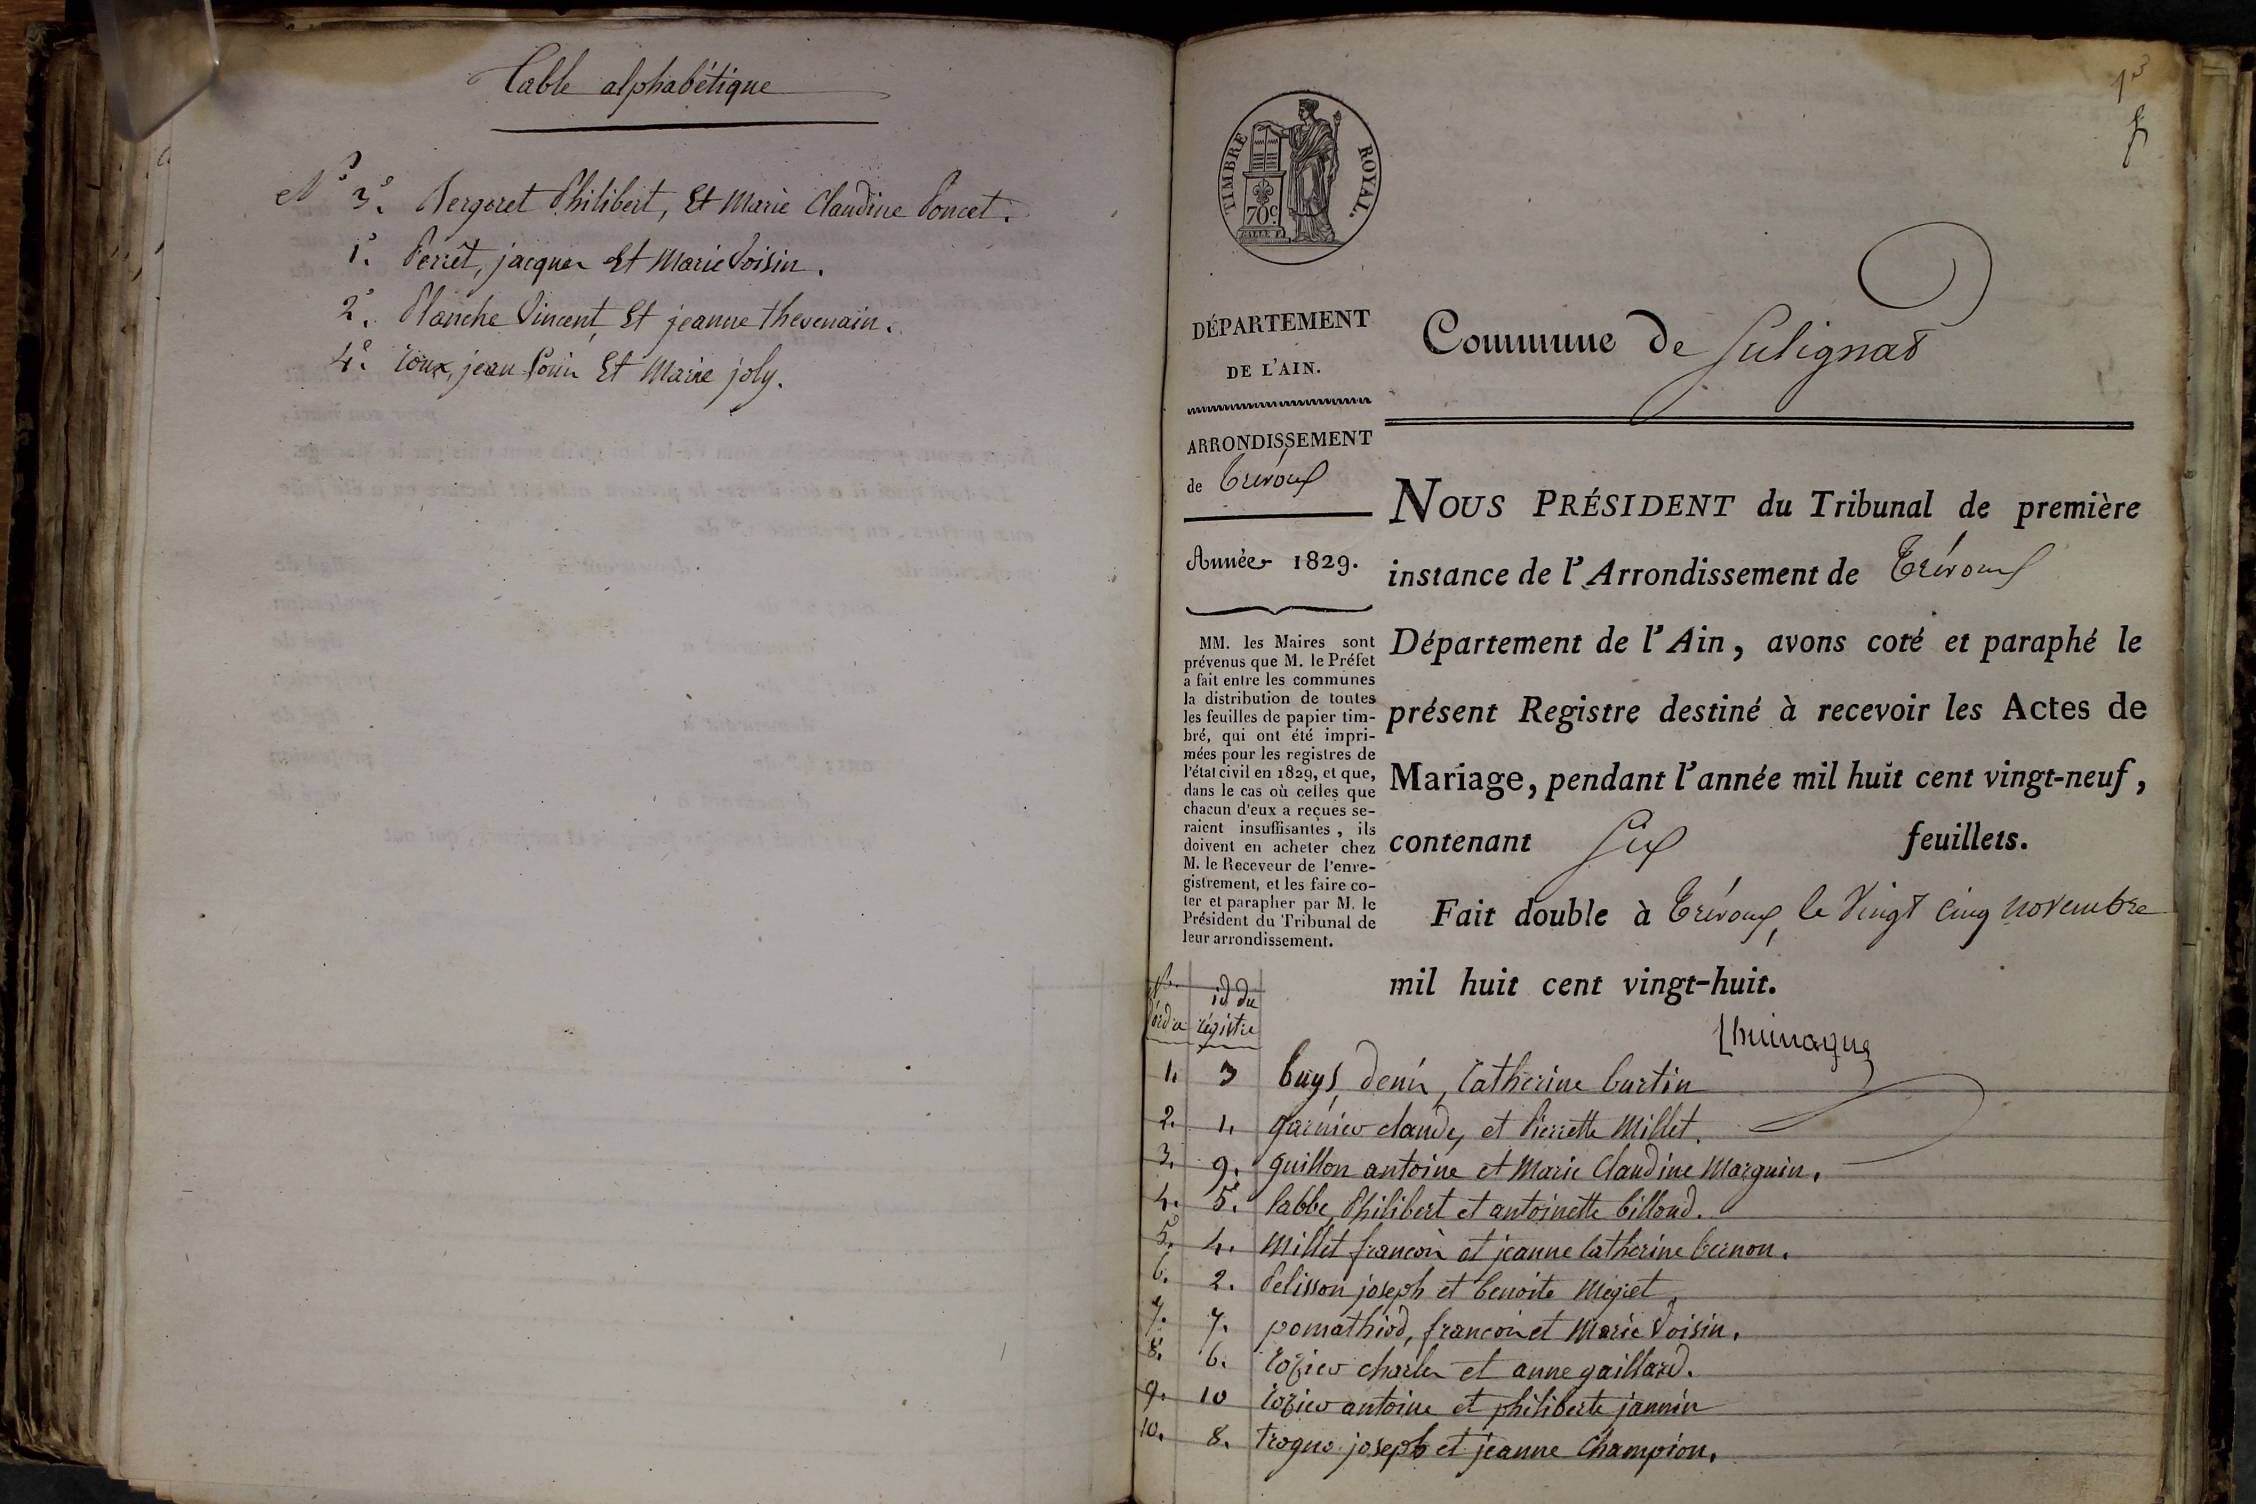 Table alphabétique
N° 3. Bergeret Philibert, Et Marie Claudine Poncet.
1. Perret, jacques Et Marie Voisin.
2. Planche Vincent, Et jeanne thevenain.
4. roux, jean Louis Et Marie joly.
TIMBRE ROYAL.
70c.
DÉPARTEMENT
DE L'AIN.
ARRONDISSEMENT
de Trévoux
Année 1829.
MM. les Maires sont
prévenus que M. le Préfet
a fait entre les communes
la distribution de toutes
les feuilles de papier tim-
bré, qui ont été impri-
mées pour les registres de
l'état civil en 1829, et que,
dans le cas où celles que
chacun d'eux a reçues se-
raient insuffisantes, ils
doivent en acheter chez
M. le Receveur de l'enre-
gistrement, et les faire co-
ter et parapher par M. le
Président du Tribunal de
leur arrondissement.
Commune de Sulignat
NOUS PRÉSIDENT du Tribunal de première
instance de l'Arrondissement de Trévoux
Département de l'Ain, avons coté et paraphé le
présent Registre destiné à recevoir les Actes de
Mariage, pendant l'année mil huit cent vingt-neuf,
contenant Six feuillets.
Fait double à Trévoux, le Vingt cinq novembre
mil huit cent vingt-huit.
d'ordre
id du
régistre
1. 3 buys, denis, Catherine Curtin
2. 1. garnier claude, et Pierrette Millet.
3. 9. guillon antoine et Marie Claudine Marguin.
4. 5. Labbe, Philibert et antoinette billoud.
5. 4. Millet francois et jeanne Catherine bernon.
6. 2. Pelisson joseph et benoite Megret.
7. 7. pomathiod, francois et Marie Voisin.
8. 6. rozier charles et anne gaillard.
9. 10 rozier antoine et philiberte jannin
10. 8. trogno joseph et jeanne Champion.